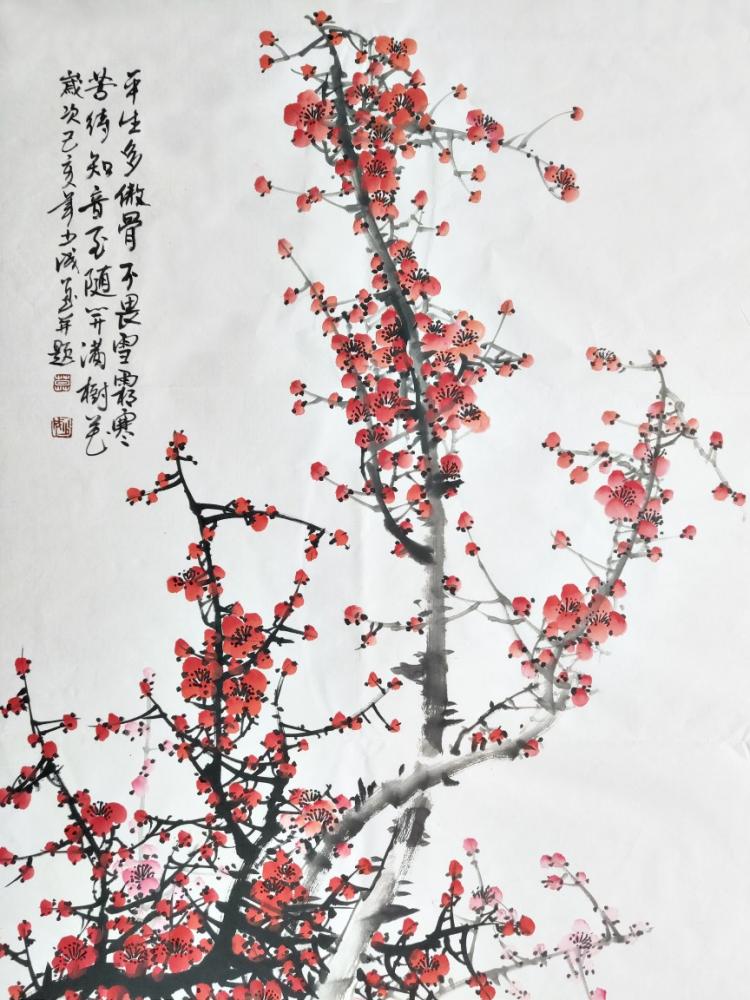 平生多傲骨不畏雪霜寒
苦待知音至随开满树花
岁次己亥年少成画并题